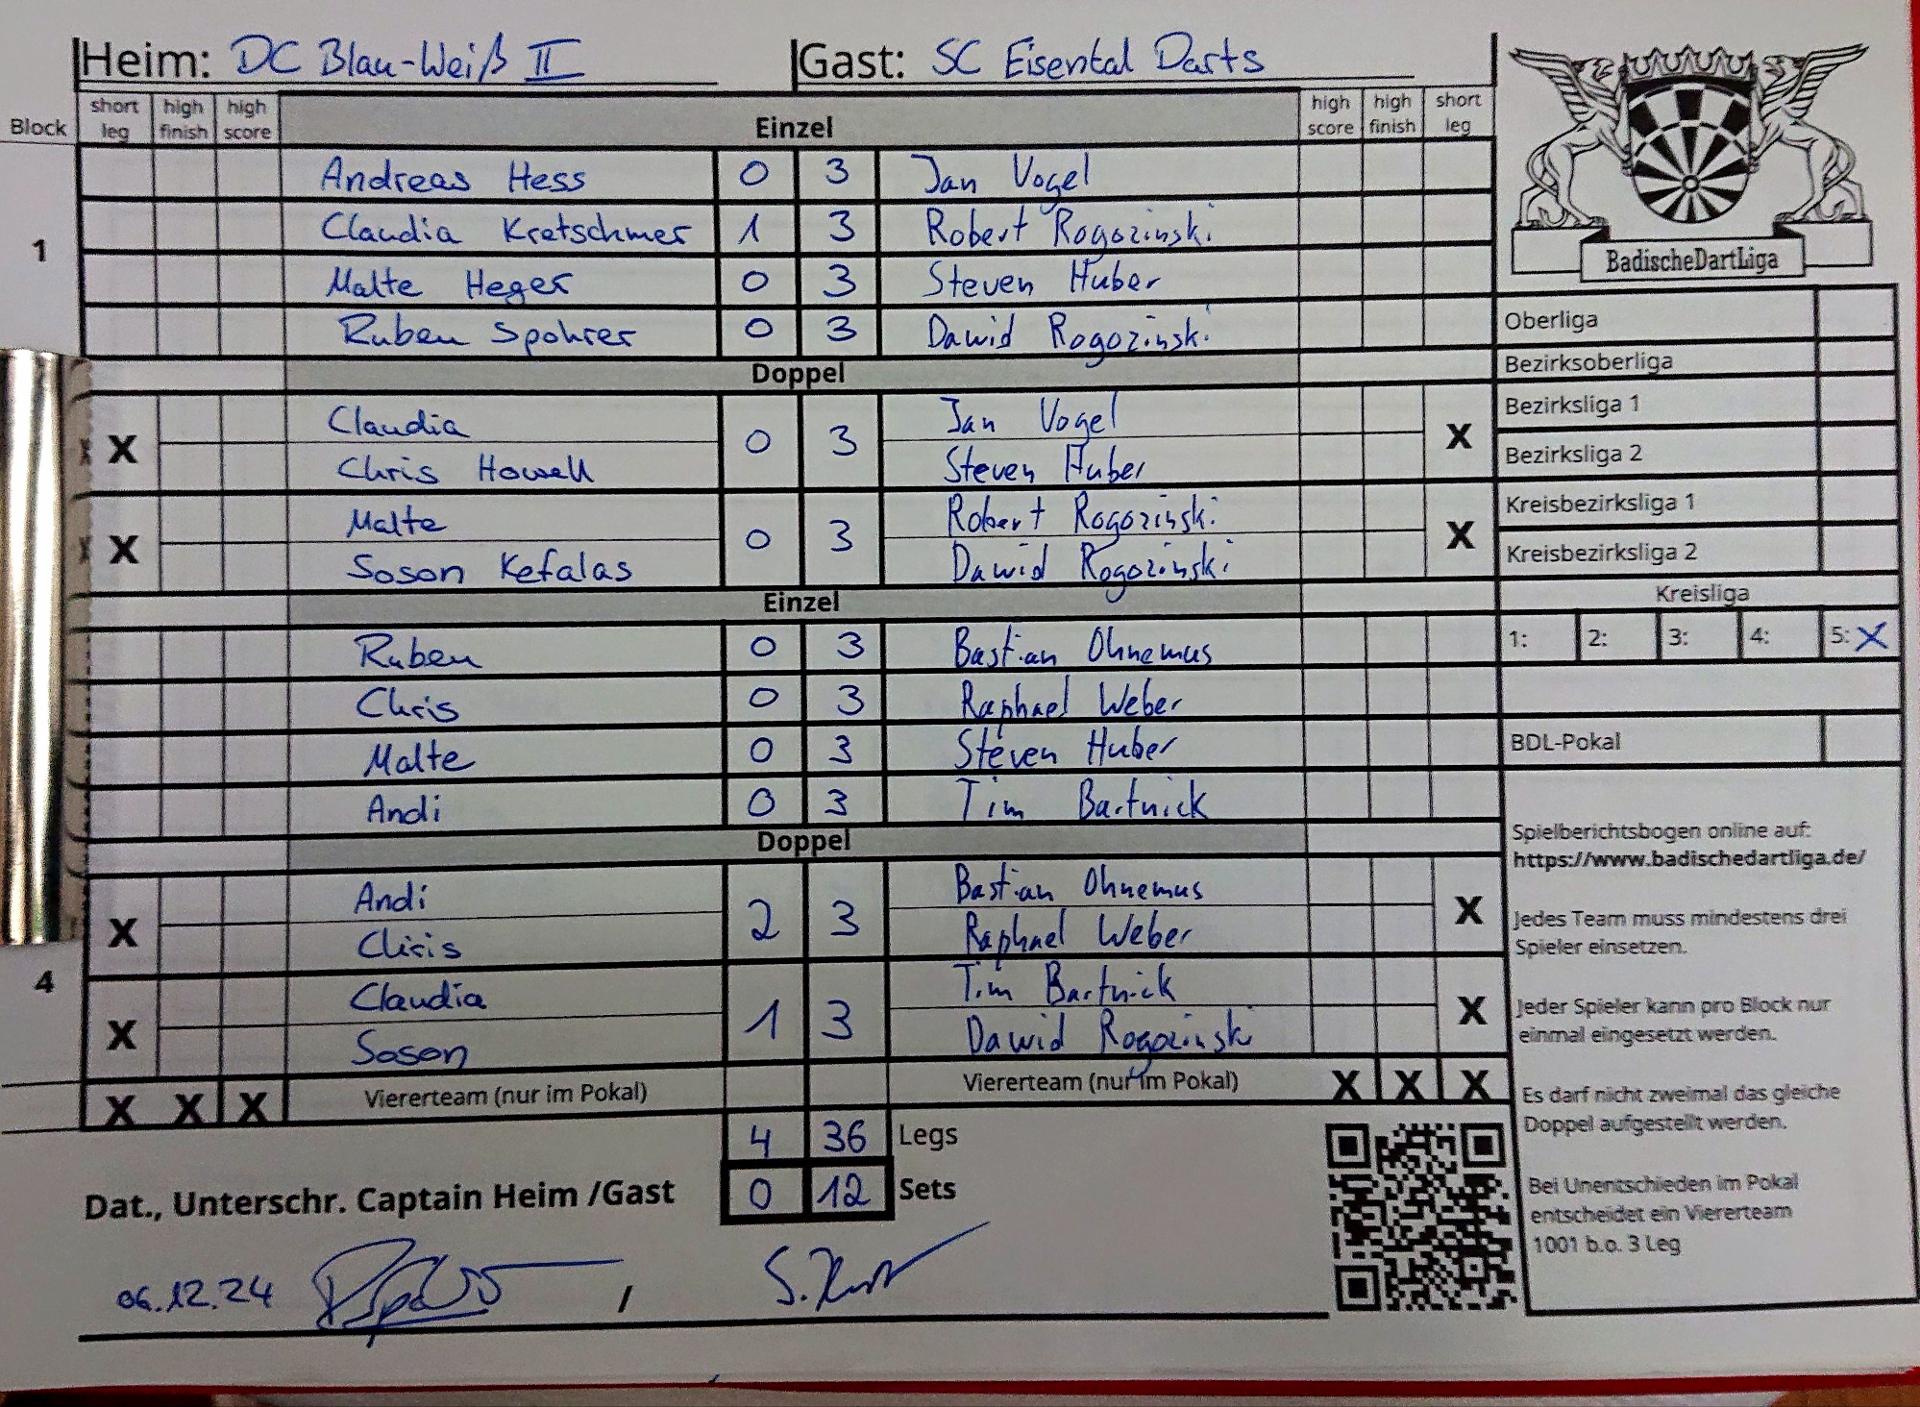 Heim: DC Blau-Weiß II Gast: SC Eisental Darts
Block short leg high finish high score Einzel high score high finish short leg
1
Andreas Hess 0 3 Jan Vogel
Claudia Kretschmer 1 3 Robert Rogozinski
Malte Heger 0 3 Steven Huber
Ruben Spohrer 0 3 Dawid Rogozinski
Doppel
X Claudia 0 3 Jan Vogel X
Chris Howell Steven Huber
X Malte 0 3 Robert Rogozinski X
Soson Kefalas Dawid Rogozinski
Einzel
Ruben 0 3 Bastian Ohnemus
Chris 0 3 Raphael Weber
Malte 0 3 Steven Huber
Andi 0 3 Tim Bartnick
Doppel
X Andi 2 3 Bastian Ohnemus X
Chris Raphael Weber
4
X Claudia 1 3 Tim Bartnick X
Soson Dawid Rogozinski
X X X Viererteam (nur im Pokal) Viererteam (nur im Pokal) X X X
4 36 Legs
0 12 Sets
Dat., Unterschr. Captain Heim /Gast
06.12.24 /
BadischeDartLiga
Oberliga
Bezirksoberliga
Bezirksliga 1
Bezirksliga 2
Kreisbezirksliga 1
Kreisbezirksliga 2
Kreisliga
1: 2: 3: 4: 5: X
BDL-Pokal
Spielberichtsbogen online auf:
https://www.badischedartliga.de/
Jedes Team muss mindestens drei
Spieler einsetzen.
Jeder Spieler kann pro Block nur
einmal eingesetzt werden.
Es darf nicht zweimal das gleiche
Doppel aufgestellt werden.
Bei Unentschieden im Pokal
entscheidet ein Viererteam
1001 b.o. 3 Leg